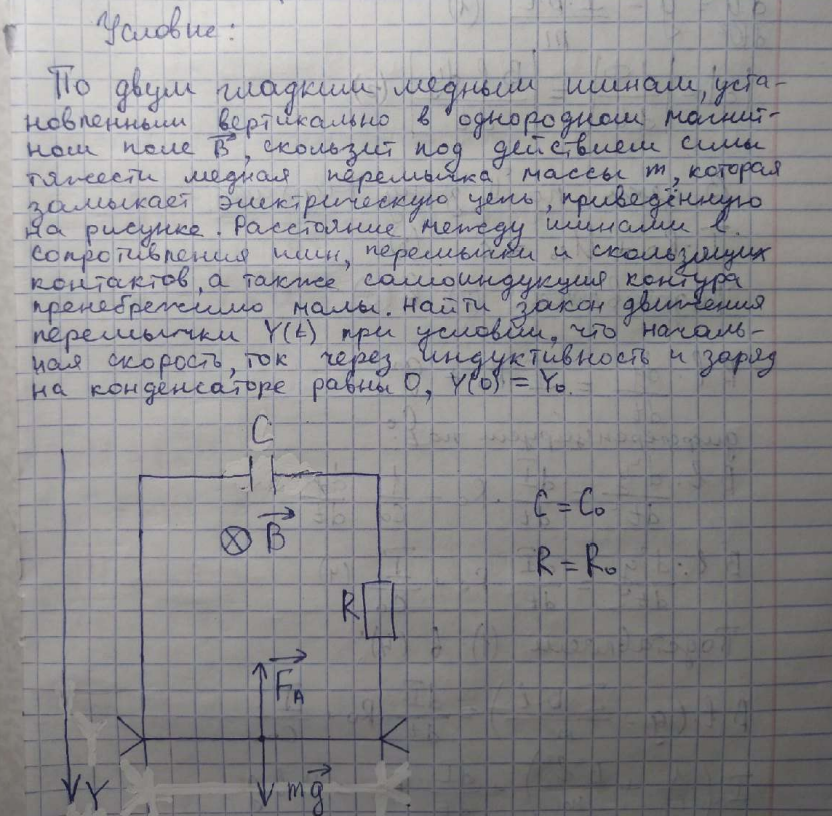 Условие:
По двум гладким медным шинам, уста-
новленным вертикально в однородном магнит-
ном поле B, скользит под действием силы
тяжести медная перемычка массы m, которая
замыкает электрическую цепь, приведённую
на рисунке. Расстояние между шинами l.
Сопротивления шин, перемычки и скользящих
контактов, а также самоиндукция контура
пренебрежимо малы. Найти закон движения
перемычки Y(t) при условии, что началь-
ная скорость, ток через индуктивность и заряд
на конденсаторе равны 0, Y(0) = Y₀.
C
B
C = C₀
R = R₀
R
F_A
Y
mg